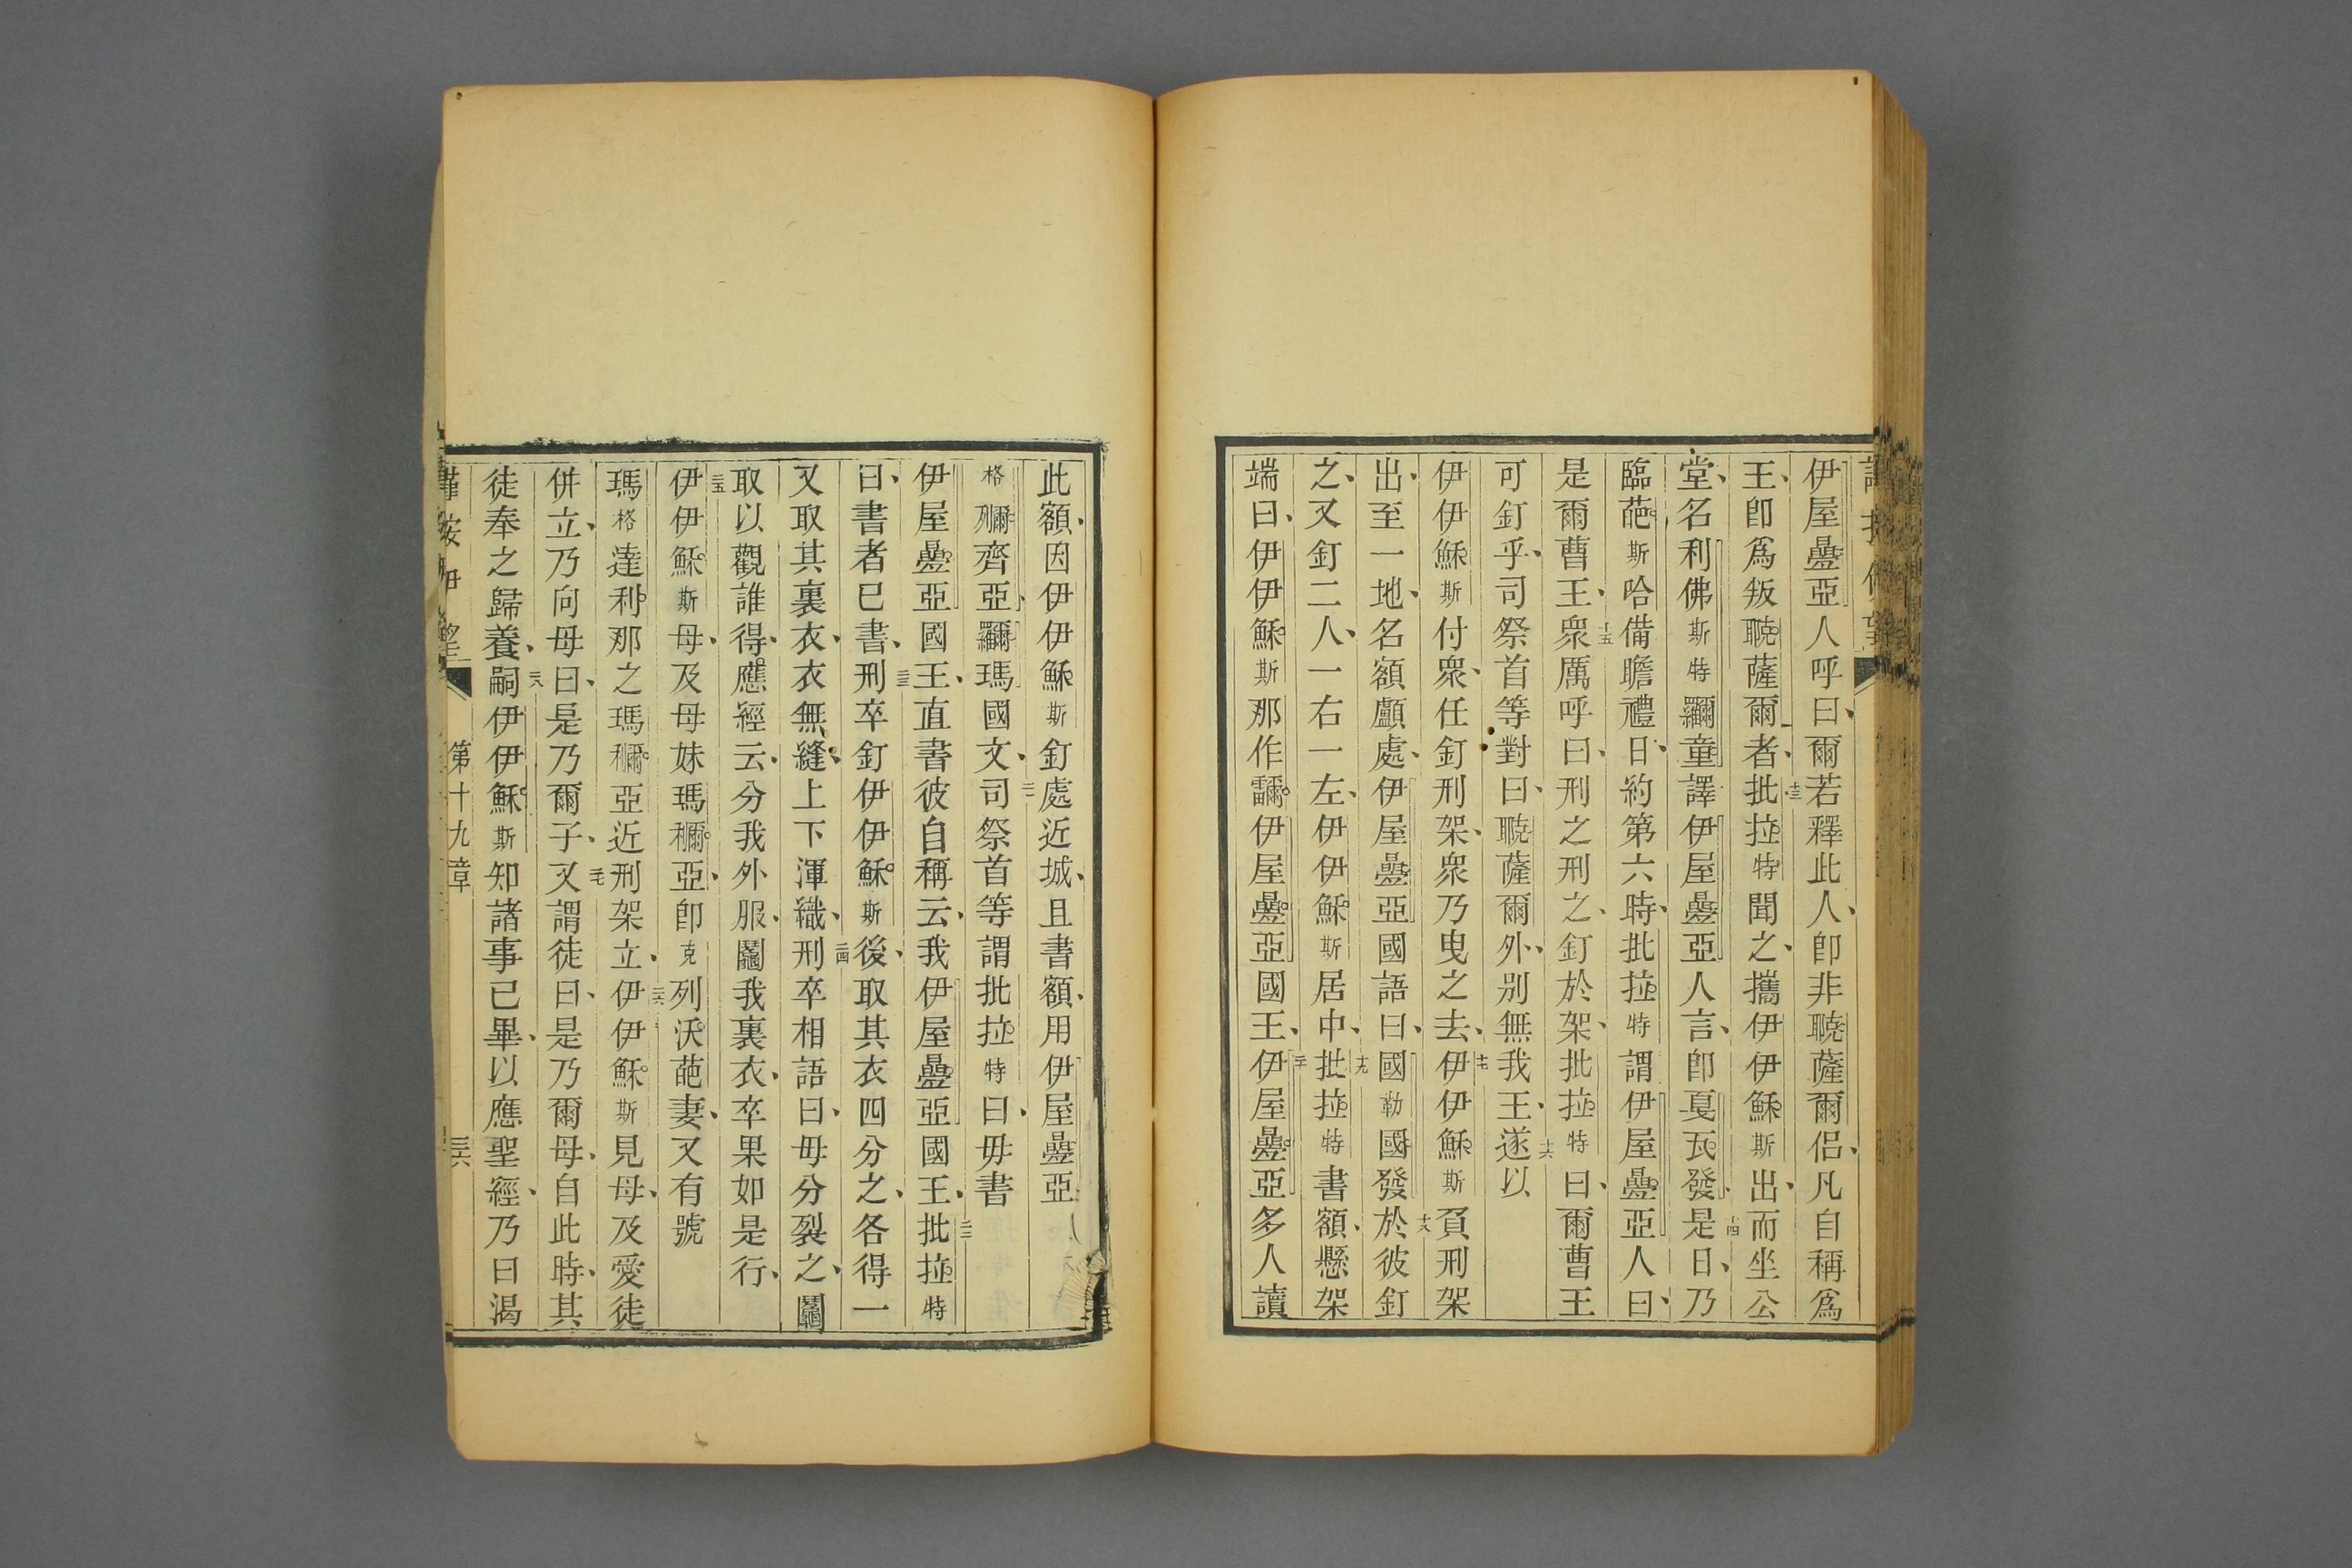 伊屋疊亞人呼曰、爾若釋此人、卽非聽薩爾侶、凡自稱爲
王、卽爲叛聽薩爾者、十三批拉特聞之、攜伊伊穌斯出、而坐公
堂、名利佛斯特羅童、譯伊屋疊亞人言、卽戛瓦發、十四是日、乃
臨葩斯哈備瞻禮日、約第六時、批拉特謂伊屋疊亞人曰、
是爾曹王、十五衆厲呼曰、刑之刑之、釘於架、批拉特曰、爾曹王
可釘乎、司祭首等對曰、聽薩爾外、別無我王、十六遂以
伊伊穌斯付衆、任釘刑架、衆乃曳之去、十七伊伊穌斯負刑架
出、至一地、名額顱處、伊屋疊亞國語曰、國勒國發、十八於彼釘
之、又釘二人、一右一左、伊伊穌斯居中、十九批拉特書額、懸架
端曰、伊伊穌斯那作爾伊屋疊亞國王、二十伊屋疊亞多人讀
此額、因伊伊穌斯釘處近城、且書額、用伊屋疊亞
格列齊亞、羅瑪國文、二一司祭首等謂批拉特曰、毋書
伊屋疊亞國王、直書彼自稱云、我伊屋疊亞國王、二二批拉特
曰、書者已書、二三刑卒釘伊伊穌斯後、取其衣四分之、各得一
又取其裏衣、衣無縫、上下渾織、二四刑卒相語曰、毋分裂之、鬮
取以觀誰得、應經云、分我外服、鬮我裏衣、卒果如是行、
二五伊伊穌斯母、及母妹瑪利亞、卽克列沃葩妻、又有號
瑪格達利那之瑪利亞近刑架立、二六伊伊穌斯見母、及愛徒
併立、乃向母曰、是乃爾子、二七又謂徒曰、是乃爾母、自此時、其
徒奉之歸養、二八嗣伊伊穌斯知諸事已畢、以應聖經、乃曰渴
第十九章
三六